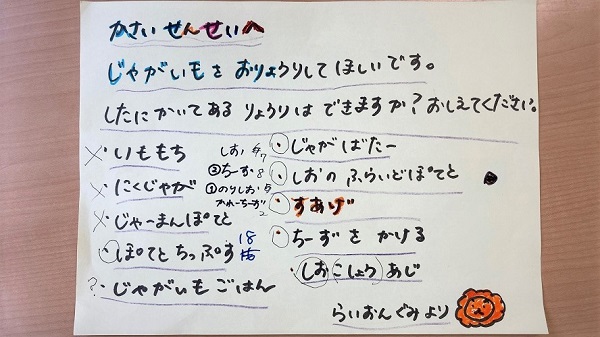 かさい せんせいへ
じゃがいもを おりょうりして ほしいです。
したに かいてある りょうりは できますか？ おしえてください。
× いももち
× にくじゃが
× じゃーまんぽてと
ぽてとちっぷす 18
? じゃがいもごはん
しお 7
② ちーず 8
① のりしお 5
かれーちーず 2
じゃがばたー
しおの ふらいどぽてと
すあげ
ちーずを かける
しおこしょうあじ
らいおんぐみより